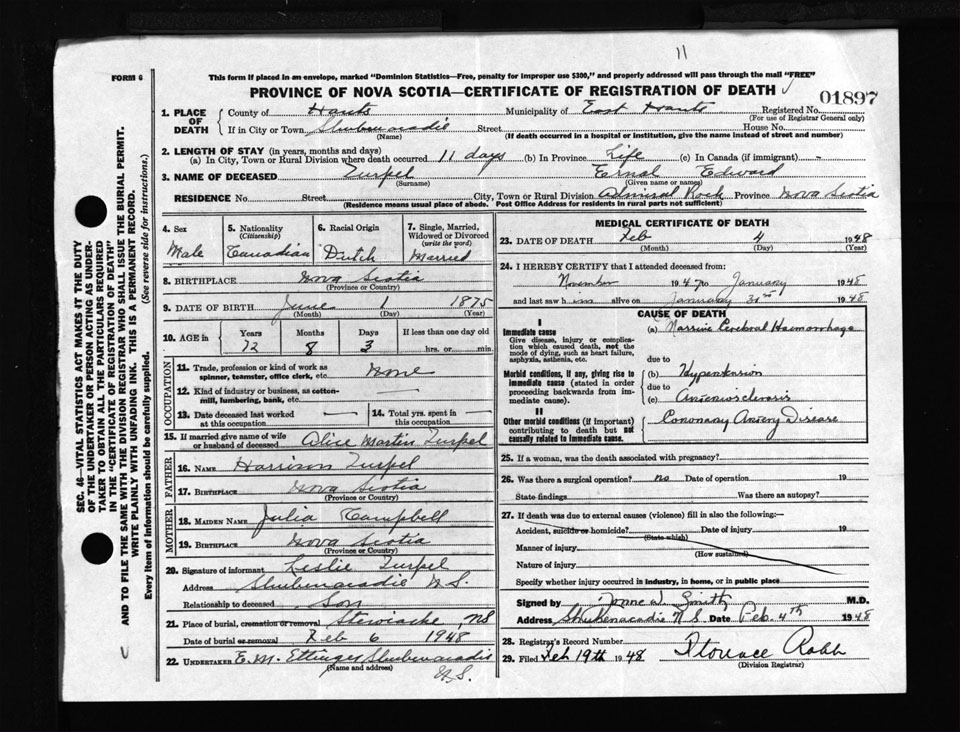 11
FORM 6
This form if placed in an envelope, marked "Dominion Statistics—Free, penalty for improper use $300," and properly addressed will pass through the mail "FREE"
PROVINCE OF NOVA SCOTIA—CERTIFICATE OF REGISTRATION OF DEATH
01897
1. PLACE OF DEATH County of Hants Municipality of East Hants Registered No.
(For use of Registrar General only)
If in City or Town Shubenacadie Street House No.
(Name) (If death occurred in a hospital or institution, give the name instead of street and number)
2. LENGTH OF STAY (in years, months and days)
(a) In City, Town or Rural Division where death occurred 11 days (b) In Province Life (c) In Canada (if immigrant) -
3. NAME OF DECEASED Turpel Ernal Edward
(Surname) (Given name or names)
RESIDENCE No. Street City, Town or Rural Division Admiral Rock Province Nova Scotia
(Residence means usual place of abode. Post Office Address for residents in rural parts not sufficient)
4. Sex Male
5. Nationality (Citizenship) Canadian
6. Racial Origin Dutch
7. Single, Married, Widowed or Divorced (write the word) Married
8. BIRTHPLACE Nova Scotia
(Province or Country)
9. DATE OF BIRTH June 1 1875
(Month) (Day) (Year)
10. AGE in Years Months Days If less than one day old
72 8 3 hrs. or min.
OCCUPATION
11. Trade, profession or kind of work as spinner, teamster, office clerk, etc. None
12. Kind of industry or business, as cotton-mill, lumbering, bank, etc.
13. Date deceased last worked at this occupation
14. Total yrs. spent in this occupation
15. If married give name of wife or husband of deceased Alice Martin Turpel
FATHER
16. NAME Harrison Turpel
17. BIRTHPLACE Nova Scotia
(Province or Country)
MOTHER
18. MAIDEN NAME Julia Campbell
19. BIRTHPLACE Nova Scotia
(Province or Country)
20. Signature of informant Leslie Turpel
Address Shubenacadie N.S.
Relationship to deceased Son
21. Place of burial, cremation or removal Stewiacke, NS
Date of burial or removal Feb 6 1948
22. UNDERTAKER E.M. Ettinger Shubenacadie
(Name and address) N.S.
MEDICAL CERTIFICATE OF DEATH
23. DATE OF DEATH Feb 4 1948
(Month) (Day) (Year)
24. I HEREBY CERTIFY that I attended deceased from:
November 1947 to January 1948
and last saw him alive on January 1948
CAUSE OF DEATH
I
Immediate cause
Give disease, injury or complication which caused death, not the mode of dying, such as heart failure, asphyxia, asthenia, etc.
(a) Massive Cerebral Haemorrhage
due to
Morbid conditions, if any, giving rise to immediate cause (stated in order proceeding backwards from immediate cause).
(b) Hypertension
due to
(c) Arteriosclerosis
II
Other morbid conditions (if important) contributing to death but not causally related to immediate cause.
Coronary Artery Disease
25. If a woman, was the death associated with pregnancy?
26. Was there a surgical operation? no Date of operation 19
State findings Was there an autopsy?
27. If death was due to external causes (violence) fill in also the following:—
Accident, suicide or homicide? Date of injury 19
(State which)
Manner of injury
(How sustained)
Nature of injury
Specify whether injury occurred in industry, in home, or in public place
Signed by Smith M.D.
Address Shubenacadie N.S. Date Feb. 4th 1948
28. Registrar's Record Number
29. Filed Feb 19th 1948 Florence Robb
(Division Registrar)
SEC. 46—VITAL STATISTICS ACT MAKES IT THE DUTY
OF THE UNDERTAKER OR PERSON ACTING AS UNDERTAKER
TO OBTAIN ALL THE PARTICULARS REQUIRED
IN THE "CERTIFICATE OF REGISTRATION OF DEATH"
AND TO FILE THE SAME WITH THE DIVISION REGISTRAR WHO SHALL ISSUE THE BURIAL PERMIT.
WRITE PLAINLY WITH UNFADING INK. THIS IS A PERMANENT RECORD.
Every item of Information should be carefully supplied. (See reverse side for instructions.)